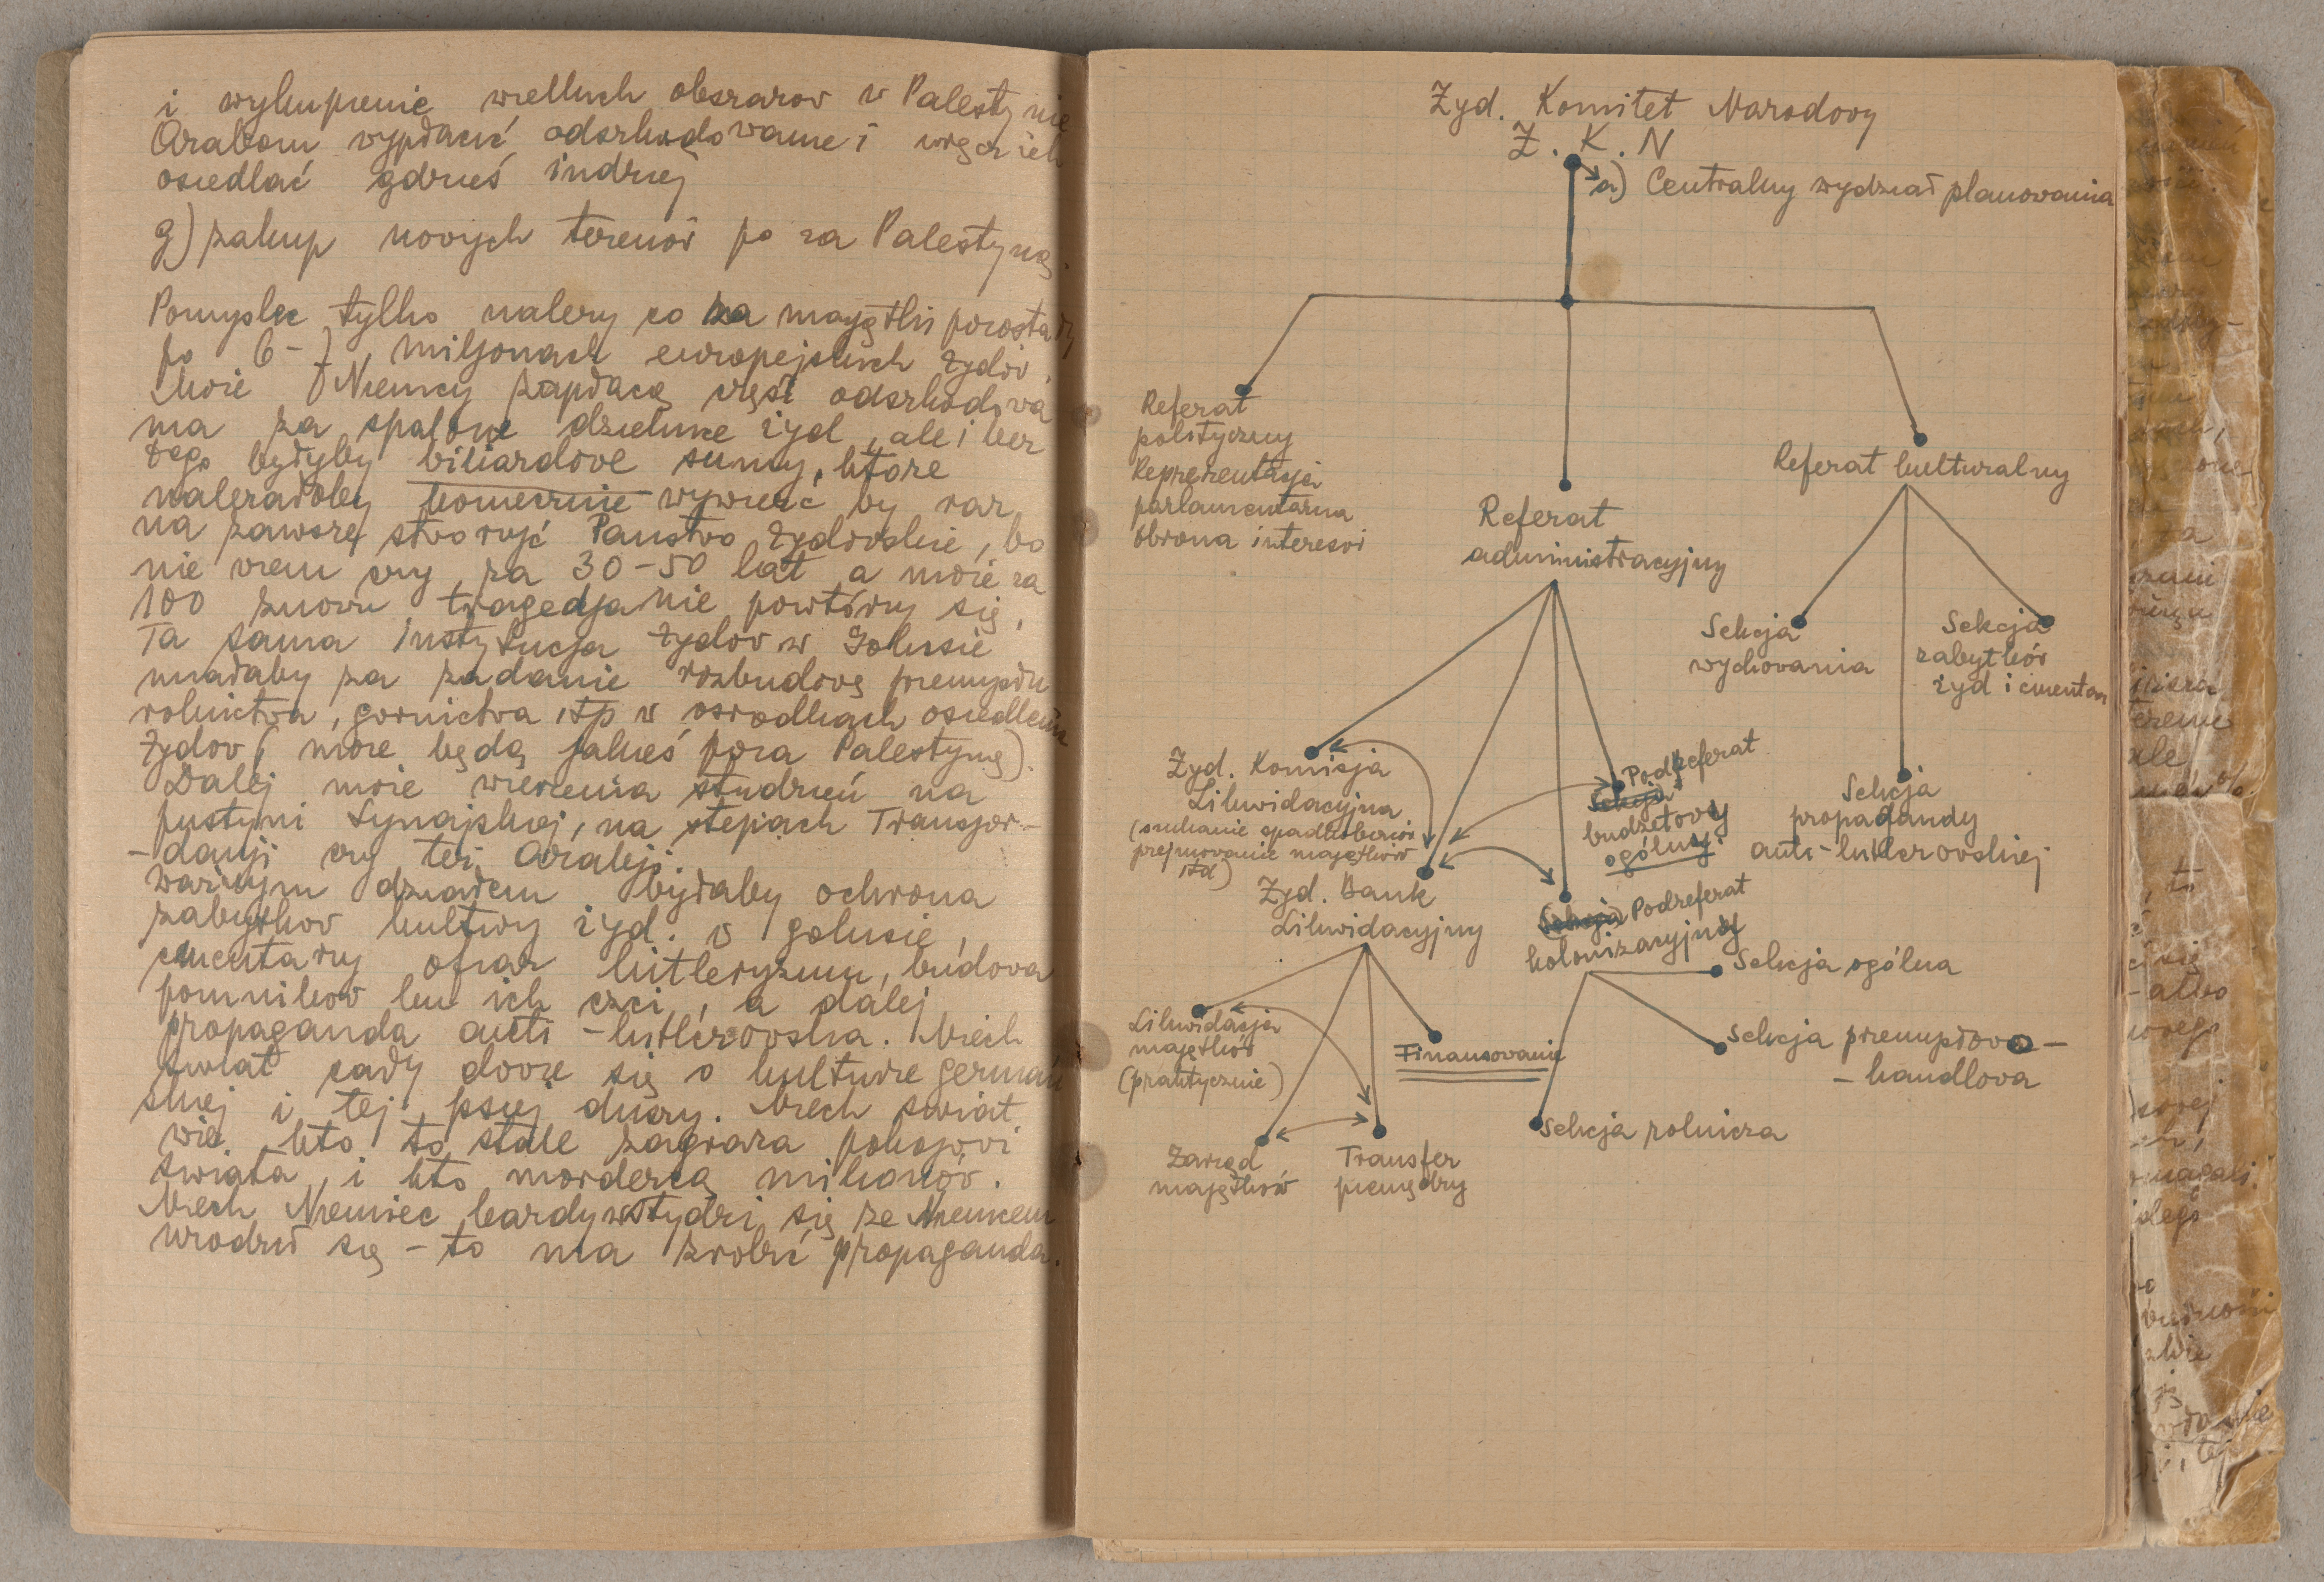 i wykupienie wielkich obszarow w Palestynie
Arabom wypłacić odszkodowanie i wręcz ich
osiedlać gdzieś indziej
g) zakup nowych terenów po za Palestyną.
Pomyslec tylko należy co za majątki pozostały
po 6-7 miljonach europejskich żydów.
Może Niemcy zapłacą część odszkodowa
nia za spalone dzielnice żyd, ale i bez
tego byłyby biliardowe sumy, które
należałoby koniecznie wywieźć by raz
na zawsze stworzyć Panstwo żydowskie, bo
nie wiem czy za 30-50 lat a może za
100 znowu tragedja nie powtórzy się,
Ta sama instytucja żydow w Golusie
miałaby za zadanie rozbudowę przemysłu
rolnictwa, gornictwa itp w osrodkach osiedlenia
żydow (może będą jakieś poza Palestyną).
Dalej może wiercenia studzień na
pustyni Synajskiej, na stepach Transjor-
-danji czy też Arabji.
ważnym działem byłaby ochrona
zabytkow kultury żyd. w golusie,
cmentarzy ofiar hitleryzmu, budowa
pomnikow ku ich czci, a dalej
propaganda anti-hitlerowska. Niech
świat cały dowie się o kulturze germań
skiej i tej psiej duszy. Niech świat
wie kto to stale zagraża pokojowi
świata, i kto mordercą milionów.
Niech Niemiec każdy wstydzi się że Niemcem
urodził się - to ma zrobić propaganda.
Żyd. Komitet Narodowy
Ż. K. N
a) Centralny wydział planowania
Referat
polityczny
Reprezentacja
parlamentarna
obrona interesów
Referat
administracyjny
Referat kulturalny
Sekcja
wychowania
Sekcja
zabytków
żyd i cmentarz
Sekcja
propagandy
anti-hitlerowskiej
Żyd. Komisja
Likwidacyjna
(szukanie spadkobierców
przejmowanie majątków
itd)
Podreferat
Sekcja
budżetowy
ogólny
Żyd. Bank
Likwidacyjny
(Sekcja) Podreferat
kolonizacyjny
Sekcja ogólna
Sekcja przemysłowo-
-handlowa
Sekcja rolnicza
Likwidacja
majątków
(praktycznie)
Finansowanie
Zarząd
majątków
Transfer
pieniędzy